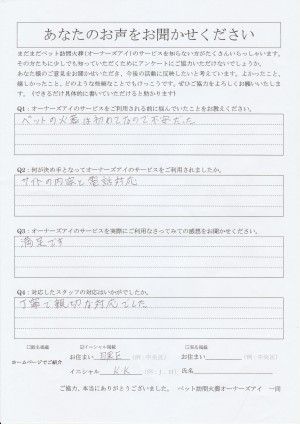 あなたのお声をお聞かせください
まだまだペット訪問火葬(オーナーズアイ)のサービスを知らない方がたくさんいらっしゃいます。
その方たちに少しでも知っていただくためにアンケートにご協力いただけないでしょうか。
あなた様のご意見をお聞かせいただき、今後の活動に反映したいと考えています。よかったこと、
嬉しかったこと、どのような些細なことでもけっこうです。ぜひご協力をよろしくお願いいたします。
(できるだけ具体的に書いていただけると助かります!)
Q1:オーナーズアイのサービスをご利用される前に悩んでいたことをお教えください。
ペットの火葬は初めてなので不安だった
Q2:何が決め手となってオーナーズアイのサービスをご利用されましたか。
サイトの内容と電話対応
Q3:オーナーズアイのサービスを実際にご利用なさってみての感想をお聞かせください。
満足です
Q4:対応したスタッフの対応はいかがでしたか。
丁寧で親切な対応でした
□匿名掲載 ☑イニシャル掲載 □実名掲載
ホームページでご紹介
お住まい 目黒区 (例:中央区) お住まい (例:中央区)
イニシャル K.K 氏名
ご協力、本当にありがとうございました。 ペット訪問火葬オーナーズアイ 一同